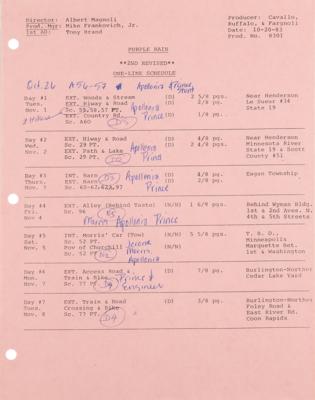 Director: Albert Magnoli
Prod. Mgr: Mike Frankovich, Jr.
1st AD: Tony Brand
Producer: Cavallo,
Ruffalo, & Fargnoli
Date: 10-26-83
Prod. No. 8301
PURPLE RAIN
**2ND REVISED**
ONE-LINE SCHEDULE
Oct. 26 A56-57 Apollonia Prince
Day #1 EXT. Woods & Stream (D) 2 5/8 pgs. Near Henderson
Tues. EXT. Hiway & Road (D) 2/8 pg. Le Sueur #34
Nov. 1 Sc. 55,58,57 PT. Apollonia State 19
EXT. Country Rd. Prince (D) 1/8 pg.
Sc. A60
Day #2 EXT. Hiway & Road (D) 4/8 pg. Near Henderson
Wed. Sc. 29 PT. Apollonia Minnesota River
Nov. 2 EXT. Path & Lake (D) 2 4/8 pgs. State 19 & Scott
Sc. 29 PT. Prince County #51
Day #3 INT. Barn D7 Apollonia (D) 4/8 pg. Eagan Township
Thurs. EXT. Barn (D) 2/8 pg.
Nov. 3 Prince
Day #4 EXT. Alley (Behind Taste) (N) 1 6/8 pgs. Behind Wyman Bldg.
Fri. Sc. 96 1st & 2nd Aves. N.
Nov. 4 Morris Apollonia Prince 4th & 5th Streets
Day #5 INT. Morris' Car (Tow) (N) 5 5/8 pgs. T. B. D.,
Sat. Sc. 52 PT. Jerome Minneapolis
Nov. 5 POV of Churchill Morris (N) Marquette Bet.
Sc. 52 PT. N2 Apollonia 1st & Washington
Day #6 EXT. Access Road & (D) 7/8 pg. Burlington-Northern
Mon. Train Prince & Cedar Lake Yard
Nov. 7 Sc. 77 PT. D9 Engineer
Day #7 EXT. Train & Road (D) 3/8 pg. Burlington-Northern
Tues. Crossing & Bike Foley Road &
Nov. 8 Sc. 77 PT. East River Rd.
D9 Coon Rapids